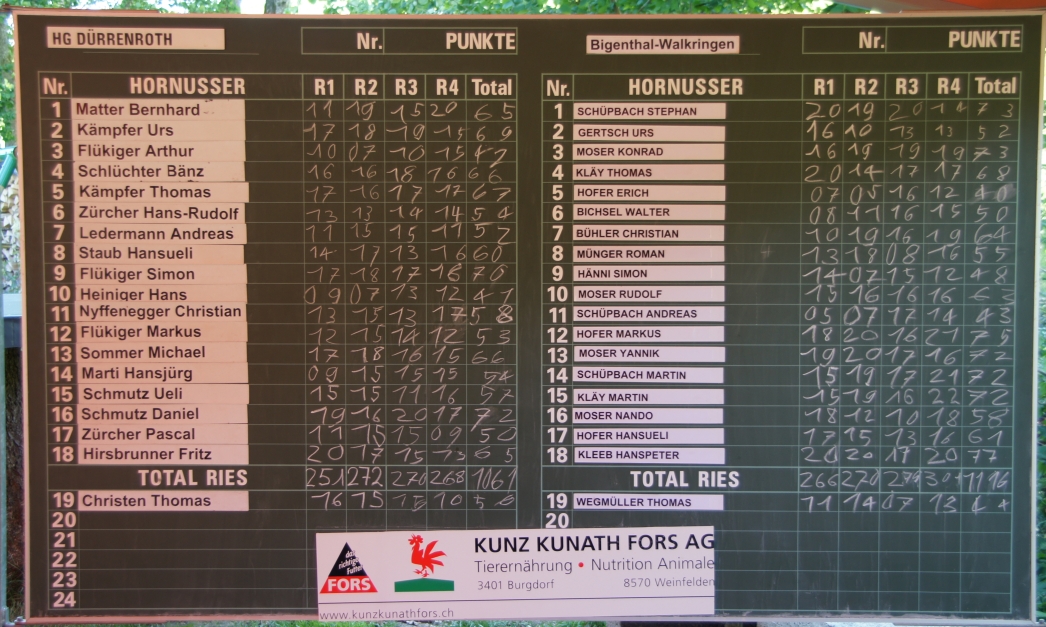 HG DÜRRENROTH Nr. PUNKTE
Nr. HORNUSSER R1 R2 R3 R4 Total
1 Matter Bernhard 11 19 15 20 65
2 Kämpfer Urs 17 18 19 15 69
3 Flükiger Arthur 10 07 10 15 42
4 Schlüchter Bänz 16 16 18 16 66
5 Kämpfer Thomas 17 16 17 17 67
6 Zürcher Hans-Rudolf 13 13 14 14 54
7 Ledermann Andreas 11 15 15 11 52
8 Staub Hansueli 14 17 13 16 60
9 Flükiger Simon 17 18 17 18 70
10 Heiniger Hans 09 07 13 12 41
11 Nyffenegger Christian 13 15 13 17 58
12 Flükiger Markus 12 15 14 12 53
13 Sommer Michael 17 18 16 15 66
14 Marti Hansjürg 09 15 15 15 54
15 Schmutz Ueli 15 15 11 16 57
16 Schmutz Daniel 19 16 20 17 72
17 Zürcher Pascal 11 15 15 09 50
18 Hirsbrunner Fritz 20 17 15 13 65
TOTAL RIES 251 272 270 268 1061
19 Christen Thomas 16 15 15 10 56
20
21
22
23
24
Bigenthal-Walkringen Nr. PUNKTE
Nr. HORNUSSER R1 R2 R3 R4 Total
1 SCHÜPBACH STEPHAN 20 19 20 14 73
2 GERTSCH URS 16 10 13 13 52
3 MOSER KONRAD 16 19 19 19 73
4 KLÄY THOMAS 20 14 17 17 68
5 HOFER ERICH 07 05 16 12 40
6 BICHSEL WALTER 08 11 16 15 50
7 BÜHLER CHRISTIAN 10 19 16 19 64
8 MÜNGER ROMAN 13 18 08 16 55
9 HÄNNI SIMON 14 07 15 12 48
10 MOSER RUDOLF 15 16 16 16 63
11 SCHÜPBACH ANDREAS 05 07 17 14 43
12 HOFER MARKUS 18 20 16 21 75
13 MOSER YANNIK 19 20 17 16 72
14 SCHÜPBACH MARTIN 15 19 17 21 72
15 KLÄY MARTIN 15 19 16 22 72
16 MOSER NANDO 18 12 10 18 58
17 HOFER HANSUELI 17 15 13 16 61
18 KLEEB HANSPETER 20 20 17 20 77
TOTAL RIES 266 270 279 301 1116
19 WEGMÜLLER THOMAS 11 14 07 13
20
das richtige Futter
FORS
KUNZ KUNATH FORS AG
Tierernährung • Nutrition Animale
3401 Burgdorf 8570 Weinfelden
www.kunzkunathfors.ch